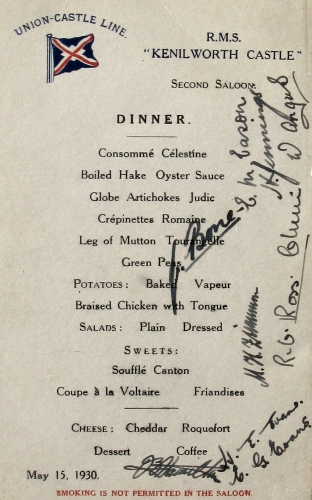 UNION-CASTLE LINE.
R.M.S.
"KENILWORTH CASTLE"
SECOND SALOON.
DINNER.
Consommé Célestine
Boiled Hake Oyster Sauce
Globe Artichokes Judic
Crépinettes Romaine
Leg of Mutton Tourangelle
Green Peas
POTATOES: Baked Vapeur
Braised Chicken with Tongue
SALADS: Plain Dressed
SWEETS:
Soufflé Canton
Coupe à la Voltaire Friandises
CHEESE: Cheddar Roquefort
Dessert Coffee
May 15, 1930.
SMOKING IS NOT PERMITTED IN THE SALOON.
Bone
E. M. Eason
H. Jennings
W Angus
R. G. Ross
H. E. Evans.
E. G. Evans.